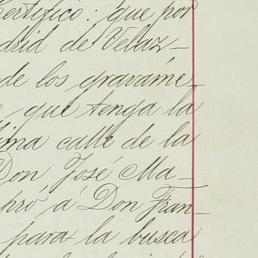 Certifico: que por
drid de Velaz-
de los graváme-
que tenga la
ima calle de la
Don José Ma-
pró á Don Fran-
para la busca